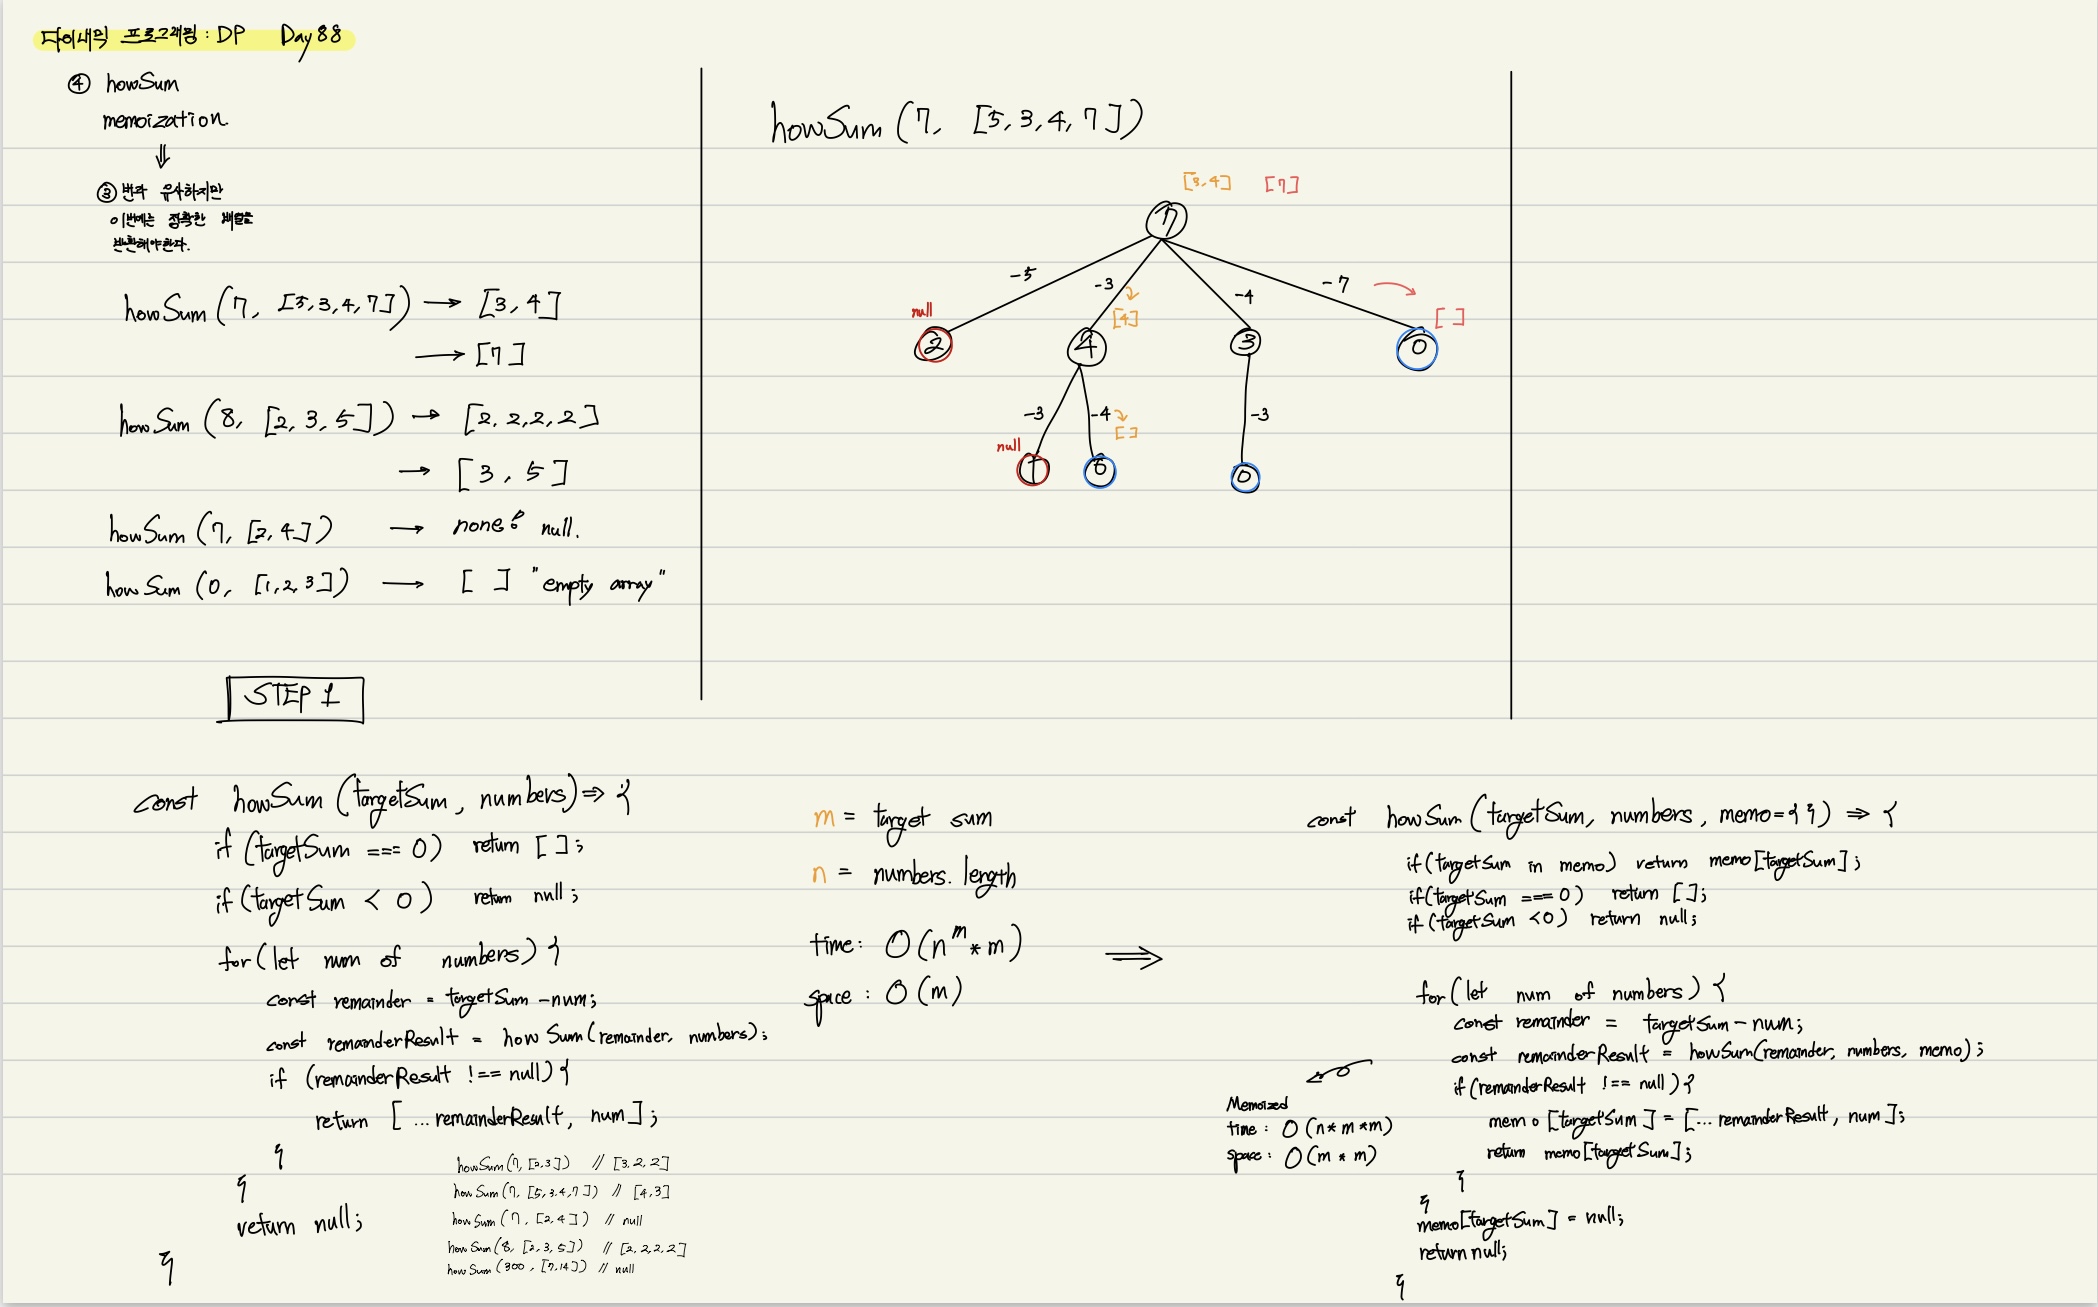 다이내믹 프로그래밍 : DP Day 88
④ howSum
memoization
⇓
③ 번과 유사하지만
이번에는 정확한 배열을
반환해야한다.
howSum (7, [5,3,4,7]) → [3,4]
→ [7]
howSum (8, [2,3,5]) → [2,2,2,2]
→ [3,5]
howSum (7, [2,4]) → none? null.
howSum (0, [1,2,3]) → [ ] "empty array"
howSum (7, [5,3,4,7])
[3,4] [7]
7
-5 -3 -4 -7
null [4] [ ]
2 4 3 0
-3 -4 -3
[ ]
null
1 0 0
STEP 1
const howSum (targetSum, numbers) => {
if (targetSum === 0) return [ ];
if (targetSum < 0) return null;
for (let num of numbers) {
const remainder = targetSum - num;
const remainderResult = howSum(remainder, numbers);
if (remainderResult !== null) {
return [ ... remainderResult, num];
}
}
return null;
}
howSum(7, [2,3]) // [3,2,2]
howSum(7, [5,3,4,7]) // [4,3]
howSum(7, [2,4]) // null
howSum(8, [2,3,5]) // [2,2,2,2]
howSum(300, [7,14]) // null
m = target sum
n = numbers.length
time: O(n^m * m)
space: O(m)
⇒
const howSum (targetSum, numbers, memo={}) => {
if(targetSum in memo) return memo[targetSum];
if(targetSum === 0) return [ ];
if(targetSum < 0) return null;
for(let num of numbers) {
const remainder = targetSum - num;
const remainderResult = howSum(remainder, numbers, memo);
if(remainderResult !== null) {
memo[targetSum] = [... remainderResult, num];
return memo[targetSum];
}
}
memo[targetSum] = null;
return null;
}
Memoized
time: O(n*m*m)
space: O(m*m)